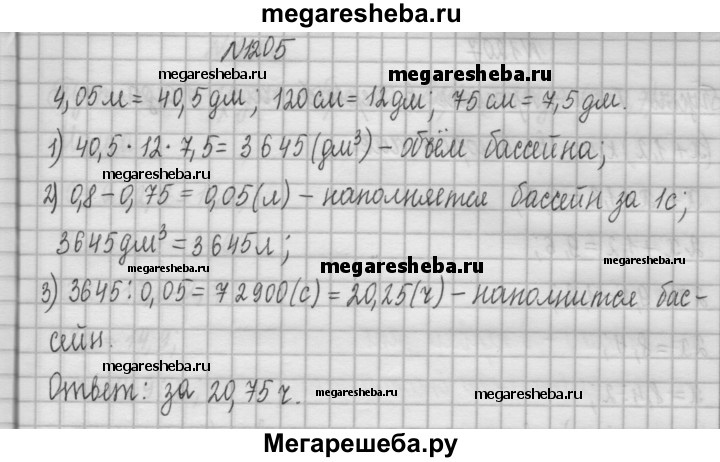 megaresheba.ru
N1205
megaresheba.ru megaresheba.ru
4,05 м = 40,5 дм; 120 см = 12 дм; 75 см = 7,5 дм.
megaresheba.ru
1) 40,5 · 12 · 7,5 = 3645 (дм³) – объём бассейна;
megaresheba.ru
2) 0,8 – 0,75 = 0,05 (л) – наполняется бассейн за 1с;
3645 дм³ = 3645 л;
megaresheba.ru megaresheba.ru megaresheba.ru
3) 3645 : 0,05 = 72900 (с) = 20,25 (ч) – наполнится бас-
сейн.
megaresheba.ru
Ответ: за 20,75 ч.
megaresheba.ru megaresheba.ru
Мегарешеба.ру